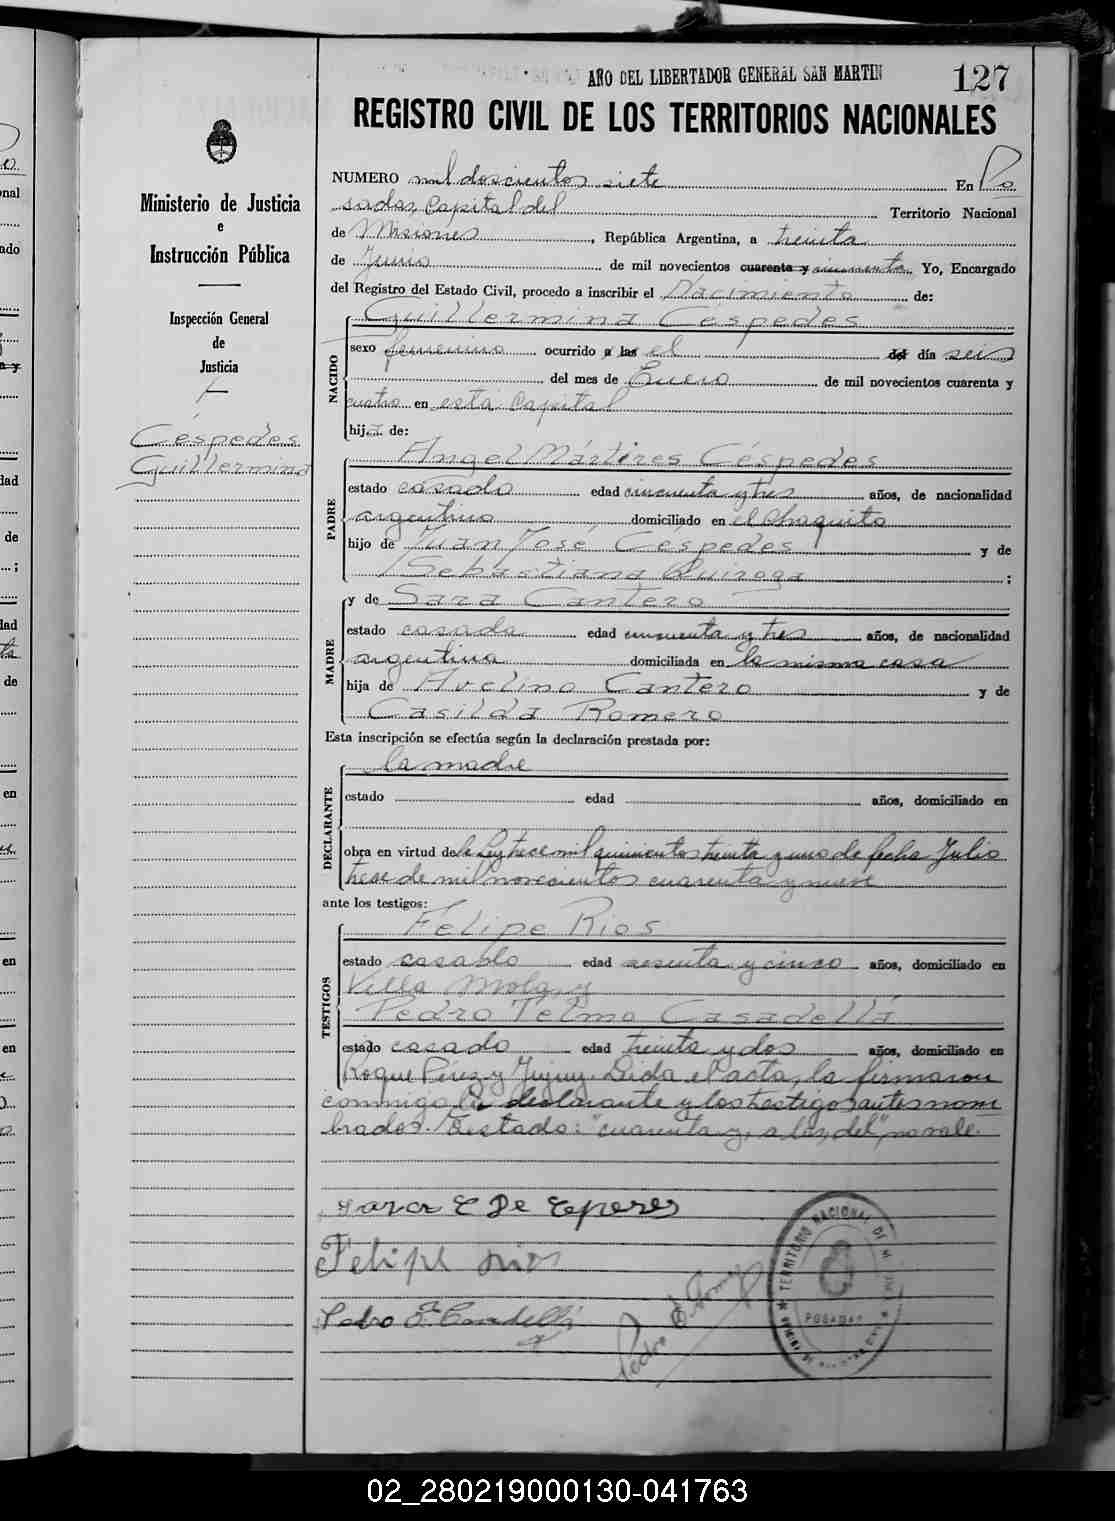 AÑO DEL LIBERTADOR GENERAL SAN MARTIN
127
REGISTRO CIVIL DE LOS TERRITORIOS NACIONALES
Ministerio de Justicia
e
Instrucción Pública
Inspección General
de
Justicia
Céspedes
Guillermina
NUMERO mil doscientos siete En Po
sadas, Capital del Territorio Nacional
de Misiones, República Argentina, a treinta
de Junio de mil novecientos cuarenta y cincuenta. Yo, Encargado
del Registro del Estado Civil, procedo a inscribir el Nacimiento de:
Guillermina Céspedes
NACIDO
sexo femenino ocurrido a las el del día seis
del mes de Enero de mil novecientos cuarenta y
cuatro en esta Capital
hija de:
PADRE
Angel Mártires Céspedes
estado casado edad cincuenta y tres años, de nacionalidad
argentino domiciliado en el Chaquito
hijo de Juan José Céspedes y de
Sebastiana Quiroga ;
MADRE
y de Sara Cantero
estado casada edad cincuenta y tres años, de nacionalidad
argentina domiciliada en la misma casa
hija de Avelino Cantero y de
Casilda Romero
Esta inscripción se efectúa según la declaración prestada por:
DECLARANTE
la madre
estado edad años, domiciliado en
obra en virtud de la Ley trece mil quinientos treinta y uno de fecha Julio
trece de mil novecientos cuarenta y nueve
ante los testigos:
TESTIGOS
Felipe Rios
estado casado edad sesenta y cinco años, domiciliado en
Villa
Pedro Telmo Casadellá
estado casado edad treinta y dos años, domiciliado en
Roque Perez y Jujuy. Leida el acta, la firmaron
conmigo la declarante y los testigos antes nom
brados. Testado: "cuarenta y, a las, del", no vale.
Sara C De
Felipe rios
Pedro
Pedro
TERRITORIO NACIONAL DE
POSADAS
02_280219000130-041763